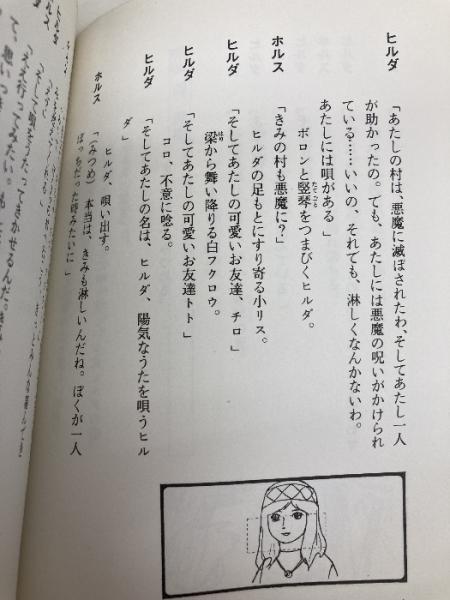 ヒルダ 「あたしの村は、悪魔に滅ぼされたわ、そしてあたし一人
が助かったの。でも、あたしには悪魔の呪いがかけられ
ている……いいの、それでも、淋しくなんかないわ。
あたしには唄がある」
ポロンと竪琴をつまびくヒルダ。
ホルス 「きみの村も悪魔に?」
ヒルダの足もとにすり寄る小リス。
ヒルダ 「そしてあたしの可愛いお友達、チロ」
梁から舞い降りる白フクロウ。
ヒルダ 「そしてあたしの可愛いお友達トト」
コロ、不意に唸る。
ヒルダ 「そしてあたしの名は、ヒルダ、陽気なうたを唄うヒル
ダ」
ヒルダ、唄い出す。
ホルス 「(みつめ) 本当は、きみも淋しいんだね。ぼくが一人
ぼっちだった時みたいに」
「ええ行ってみたい。